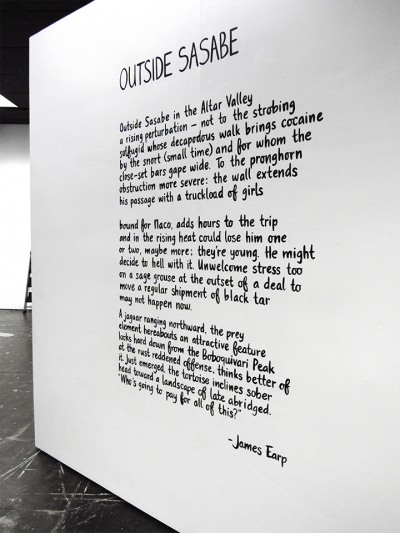 OUTSIDE SASABE
Outside Sasabe in the Altar Valley
a rising perturbation – not to the strobing
solfugid whose decapodous walk brings cocaine
by the snort (small time) and for whom the
close-set bars gape wide. To the pronghorn
obstruction more severe: the wall extends
his passage with a truckload of girls
bound for Naco, adds hours to the trip
and in the rising heat could lose him one
or two, maybe more; they're young. He might
decide to hell with it. Unwelcome stress too
on a sage grouse at the outset of a deal to
move a regular shipment of black tar
may not happen now.
A jaguar ranging northward, the prey
element hereabouts an attractive feature
looks hard down from the Boboquivari Peak
at the rust reddened offense, thinks better of
it. Just emerged, the tortoise inclines sober
head toward a landscape of late abridged.
"Who's going to pay for all of this?"
-James Earp